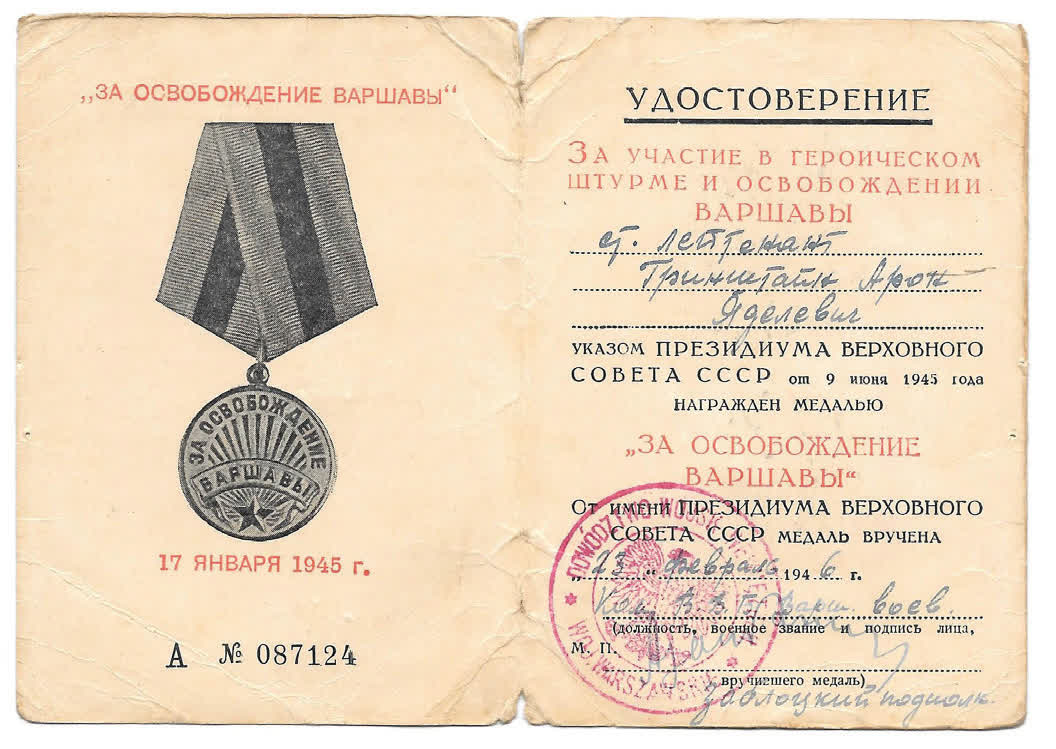 „ЗА ОСВОБОЖДЕНИЕ ВАРШАВЫ“
ЗА ОСВОБОЖДЕНИЕ
ВАРШАВЫ
17 ЯНВАРЯ 1945 г.
А № 087124
УДОСТОВЕРЕНИЕ
ЗА УЧАСТИЕ В ГЕРОИЧЕСКОМ
ШТУРМЕ И ОСВОБОЖДЕНИИ
ВАРШАВЫ
ст. лейтенант
Гринштайн Арон
Яделевич
УКАЗОМ ПРЕЗИДИУМА ВЕРХОВНОГО
СОВЕТА СССР от 9 июня 1945 года
НАГРАЖДЕН МЕДАЛЬЮ
„ЗА ОСВОБОЖДЕНИЕ
ВАРШАВЫ“
От имени ПРЕЗИДИУМА ВЕРХОВНОГО
СОВЕТА СССР МЕДАЛЬ ВРУЧЕНА
„23“ февраля 1946 г.
Ком. В.В.Б. Варш. воев.
(должность, военное звание и подпись лица,
М. П.
вручившего медаль)
Заблоцкий подполк.
DOWÓDZTWO WOJSK
WOJ. WARSZAWSKIE